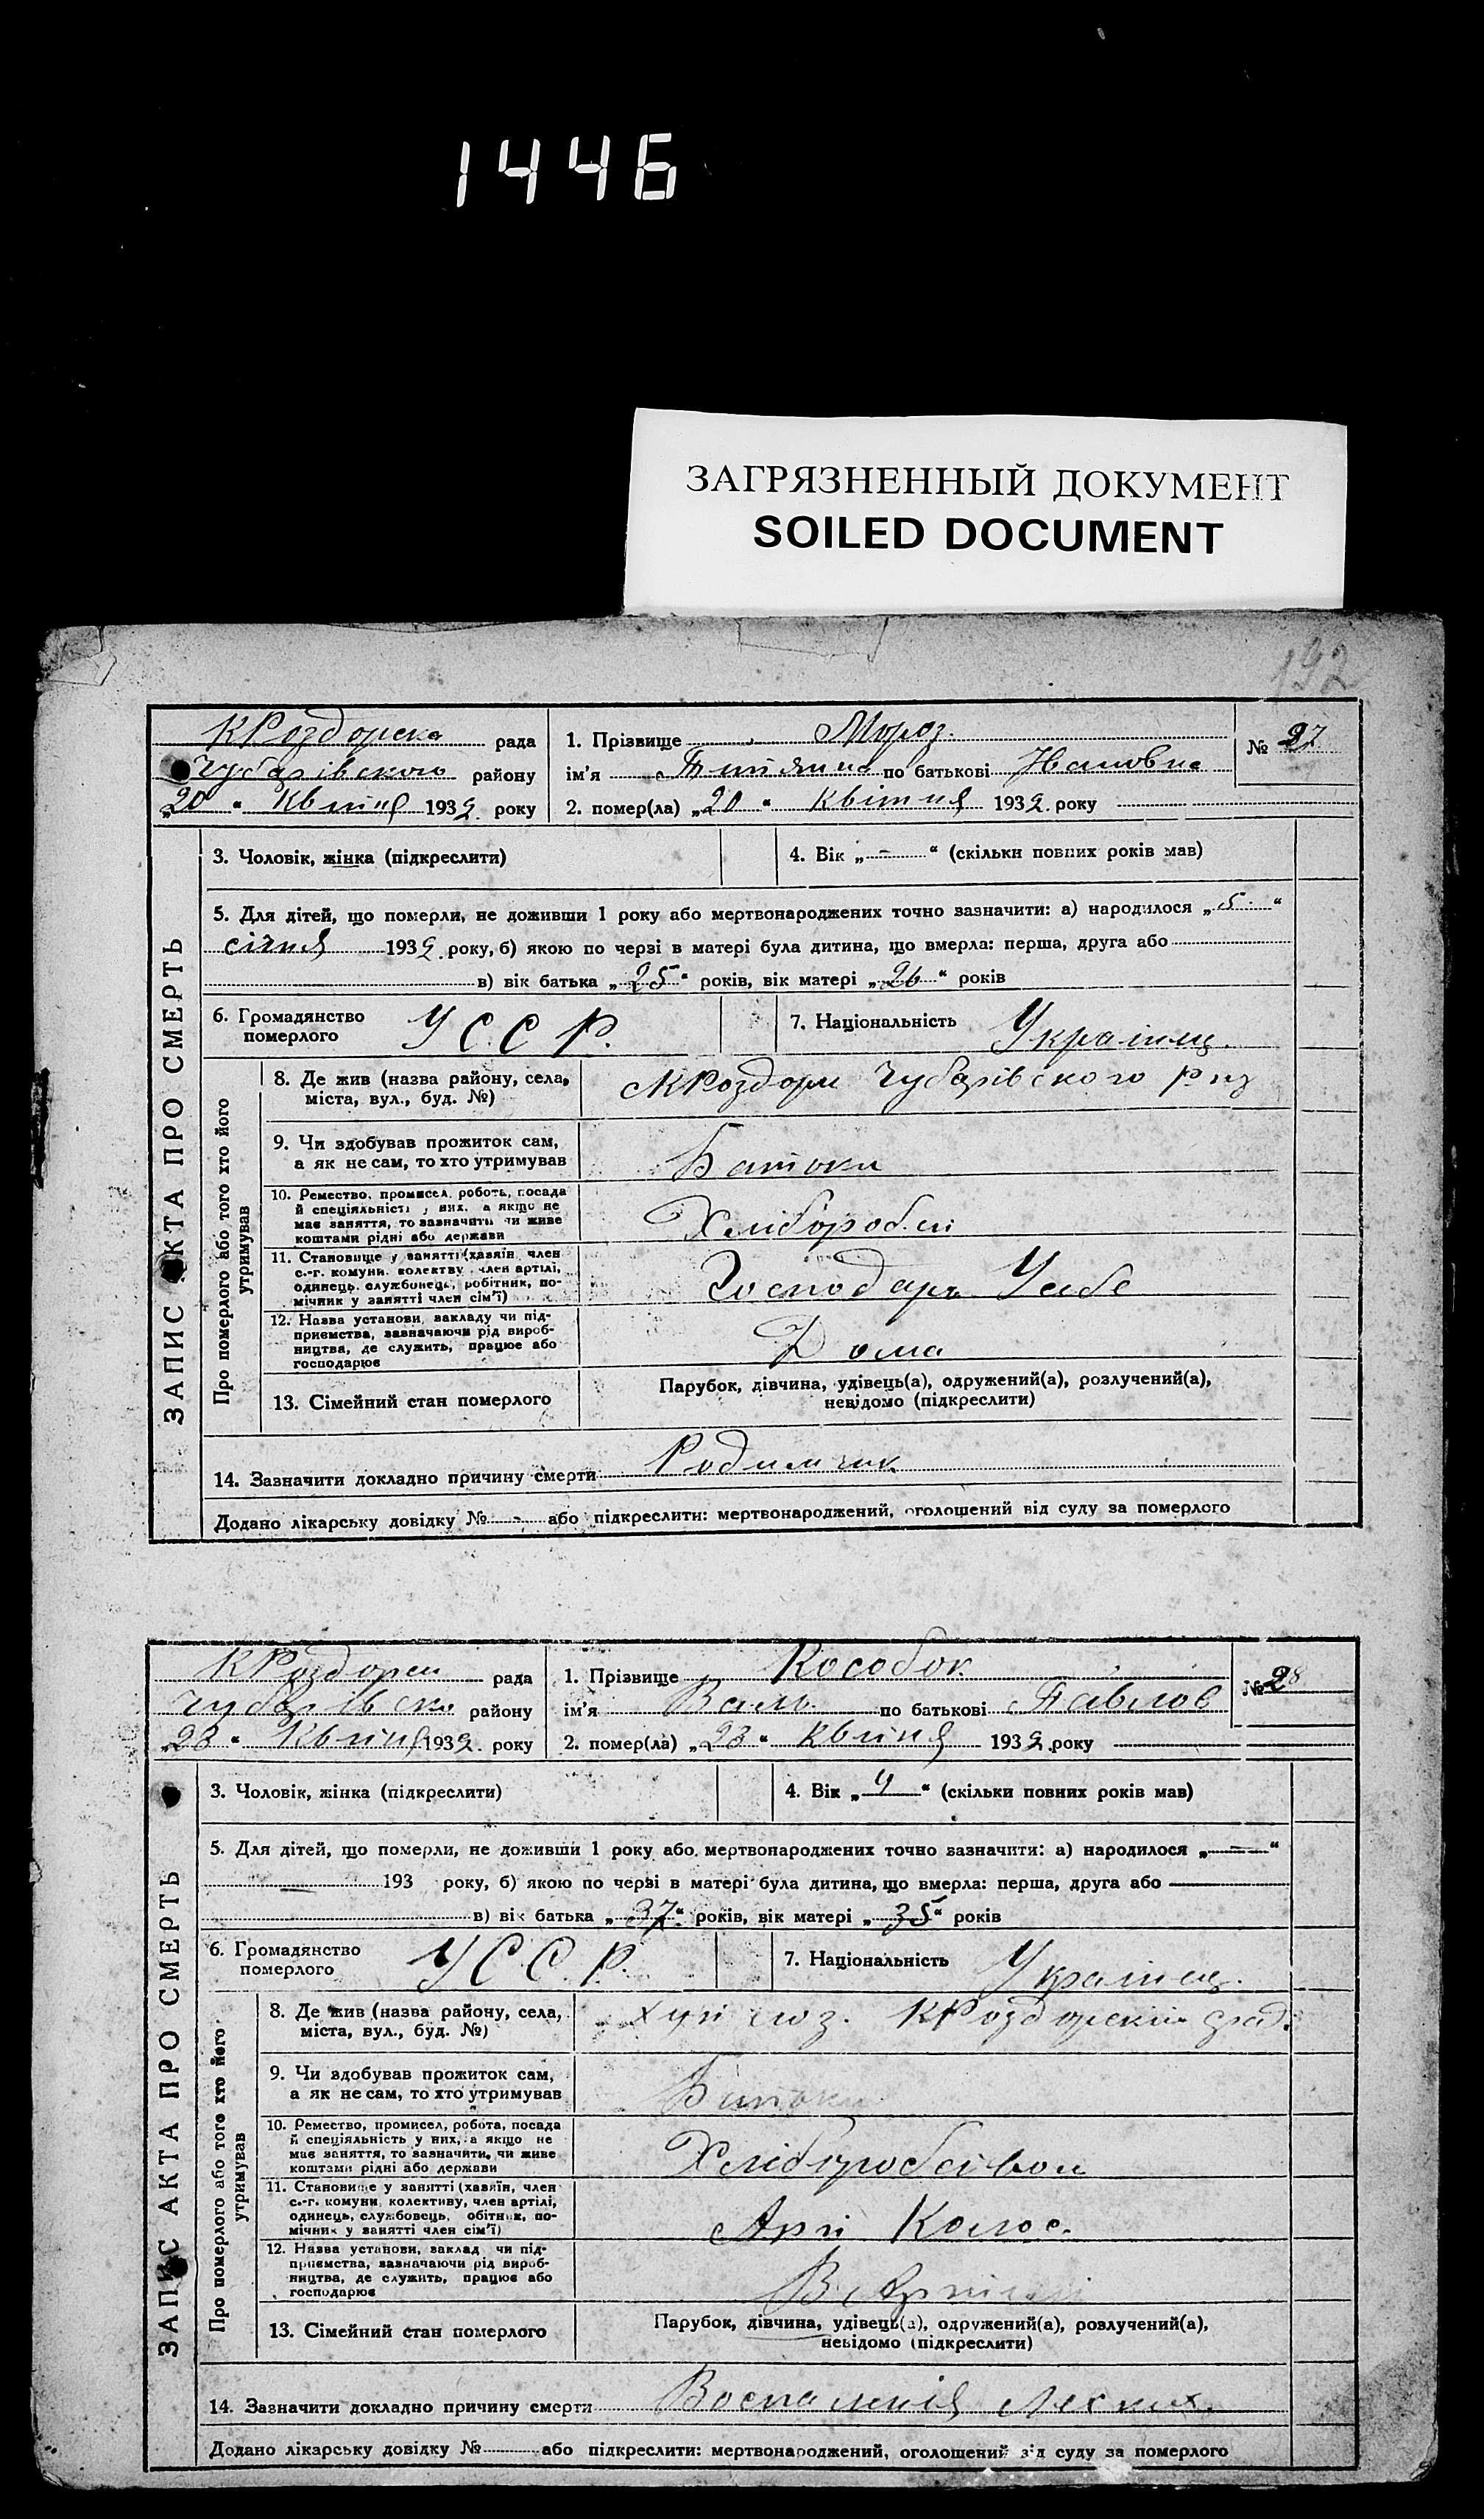 1446
ЗАГРЯЗНЕННЫЙ ДОКУМЕНТ
SOILED DOCUMENT
192
КРоздорска рада
Чубарівского району
„20“ Квітня 1932 року
1. Прізвище Мороз
№ 27
ім'я Титяна по батькові Ивановна
2. помер(ла) „20“ Квітня 1932 року
ЗАПИС АКТА ПРО СМЕРТЬ
3. Чоловік, жінка (підкреслити)
4. Вік „-“ (скільки повних років мав)
5. Для дітей, що померли, не доживши 1 року або мертвонароджених точно зазначити: а) народилося „5“
січня 1932 року, б) якою по черзі в матері була дитина, що вмерла: перша, друга або
в) вік батька „25“ років, вік матері „26“ років
6. Громадянство
померлого
УССР.
7. Національність Україњц.
Про померлого або того хто його
утримував
8. Де жив (назва району, села,
міста, вул., буд. №)
КРоздори Чубарівского р-ну
9. Чи здобував прожиток сам,
а як не сам, то хто утримував
Батьки
10. Ремество, промисел, робота, посада
й спеціяльність у них, а якщо не
має заняття, то зазначити чи живе
коштами рідні або держави
Хлібороби
11. Становище у занятті (хазяїн, член
с.-г. комуни, колективу, член артілі,
одинець, службовець, робітник, по-
мічник у занятті член сім'ї)
Господарь У себе
12. Назва установи, закладу чи під-
приємства, зазначаючи рід вироб-
ництва, де служить, працює або
господарює
Дома
13. Сімейний стан померлого
Парубок, дівчина, удівець(а), одружений(а), розлучений(а),
невідомо (підкреслити)
14. Зазначити докладно причину смерти Родимчик
Додано лікарську довідку № - або підкреслити: мертвонароджений, оголошений від суду за померлого
КРоздорск рада
Чубарівско району
„23“ Квітня 1932 року
1. Прізвище Кособок
№ 28
ім'я Вась по батькові Павлов
2. помер(ла) „23“ Квітня 1932 року
ЗАПИС АКТА ПРО СМЕРТЬ
3. Чоловік, жінка (підкреслити)
4. Вік „4“ (скільки повних років мав)
5. Для дітей, що померли, не доживши 1 року або мертвонароджених точно зазначити: а) народилося „—“
— 193 року, б) якою по черзі в матері була дитина, що вмерла: перша, друга або —
в) вік батька „37“ років, вік матері „35“ років
6. Громадянство
померлого
УССР.
7. Національність Україњц.
Про померлого або того хто його
утримував
8. Де жив (назва району, села,
міста, вул., буд. №)
КРоздорский
9. Чи здобував прожиток сам,
а як не сам, то хто утримував
Батьки
10. Ремество, промисел, робота, посада
й спеціяльність у них, а якщо не
має заняття, то зазначити, чи живе
коштами рідні або держави
Хліборобством
11. Становище у занятті (хазяїн, член
с.-г. комуни, колективу, член артілі,
одинець, службовець, робітник, по-
мічник у занятті член сім'ї)
Арті Колос.
12. Назва установи, заклад чи під-
приємства, зазначаючи рід вироб-
ництва, де служить, працює або
господарює
В Артілі
13. Сімейний стан померлого
Парубок, дівчина, удівець(а), одружений(а), розлучений(а),
невідомо (підкреслити)
14. Зазначити докладно причину смерти Воспаления Легких.
Додано лікарську довідку № або підкреслити: мертвонароджений, оголошений від суду за померлого